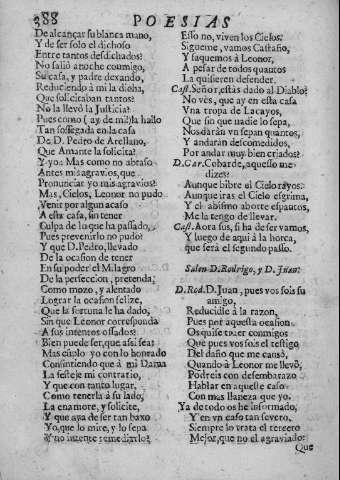 388 POESIAS
De alcançar su blanca mano,
Y de ser solo el dichoso
Entre tantos desdichados?
No saliò anoche conmigo,
Su casa, y padre dexando,
Reduciendo à mi la dicha,
Que solicitaban tantos?
No la llevò la Justicia?
Pues como (ay de mi!) la hallo
Tan sossegada en la casa
De D. Pedro de Arellano,
Que Amante la solicita?
Y yo: Mas como no abraso
Antes mis agravios, que
Pronunciar yo mis agravios?
Mas, Cielos, Leonor no pudo
Venir por algun acaso
A esta casa, sin tener
Culpa de lo que ha passado,
Pues prevenirlo no pudo?
Y que D. Pedro, llevado
De la ocasion de tener
En su poder el Milagro
De la perfeccion, pretenda,
Como mozo, y alentado
Lograr la ocasion felize,
Que la fortuna le ha dado,
Sin que Leonor corresponda
A sus intentos ossados?
Bien puede ser, que assi sea;
Mas cũplo yo con lo honrado
Consintiendo que à mi Dama
La festeje mi contrario,
Y que con tanto lugar,
Como tenerla à su lado,
La enamore, y solicite,
Y que aya de ser tan baxo
Yo, que lo mire, y lo sepa
Y no intente remediarlo?
Esso no, viven los Cielos.
Sigueme, vamos Castaño,
Y saquemos à Leonor,
A pesar de todos quantos
La quisieren defender.
Cast. Señor, estàs dado al Diablo?
No vès, que ay en esta casa
Vna tropa de Lacayos,
Que sin que nadie lo sepa,
Nos daràn vn sepan quantos,
Y andaràn descomedidos,
Por andar muy bien criados?
D. Car. Cobarde, aquesso me
dizes?
Aunque bibre el Cielo rayos,
Aunque iras el Cielo esgrima,
Y el abismo aborte espantos,
Me la tengo de llevar.
Cast. Aora sus, si ha de ser vamos,
Y luego de aqui à la horca,
que serà el segundo passo.
Salen D. Rodrigo, y D. Juan.
D. Rod. D. Juan, pues vos sois su
amigo,
Reducidle à la razon,
Pues por aquesta ocasion
Os quise traer conmigo:
Que pues vos sois el testigo
Del daño que me causò,
Quando à Leonor me llevò,
Podreis con desembarazo
Hablar en aqueste caso
Con mas llaneza que yo.
Ya de todo os he informado,
Y en vn caso tan severo,
Siempre lo trata el tercero
Mejor, que no el agraviado:
Que